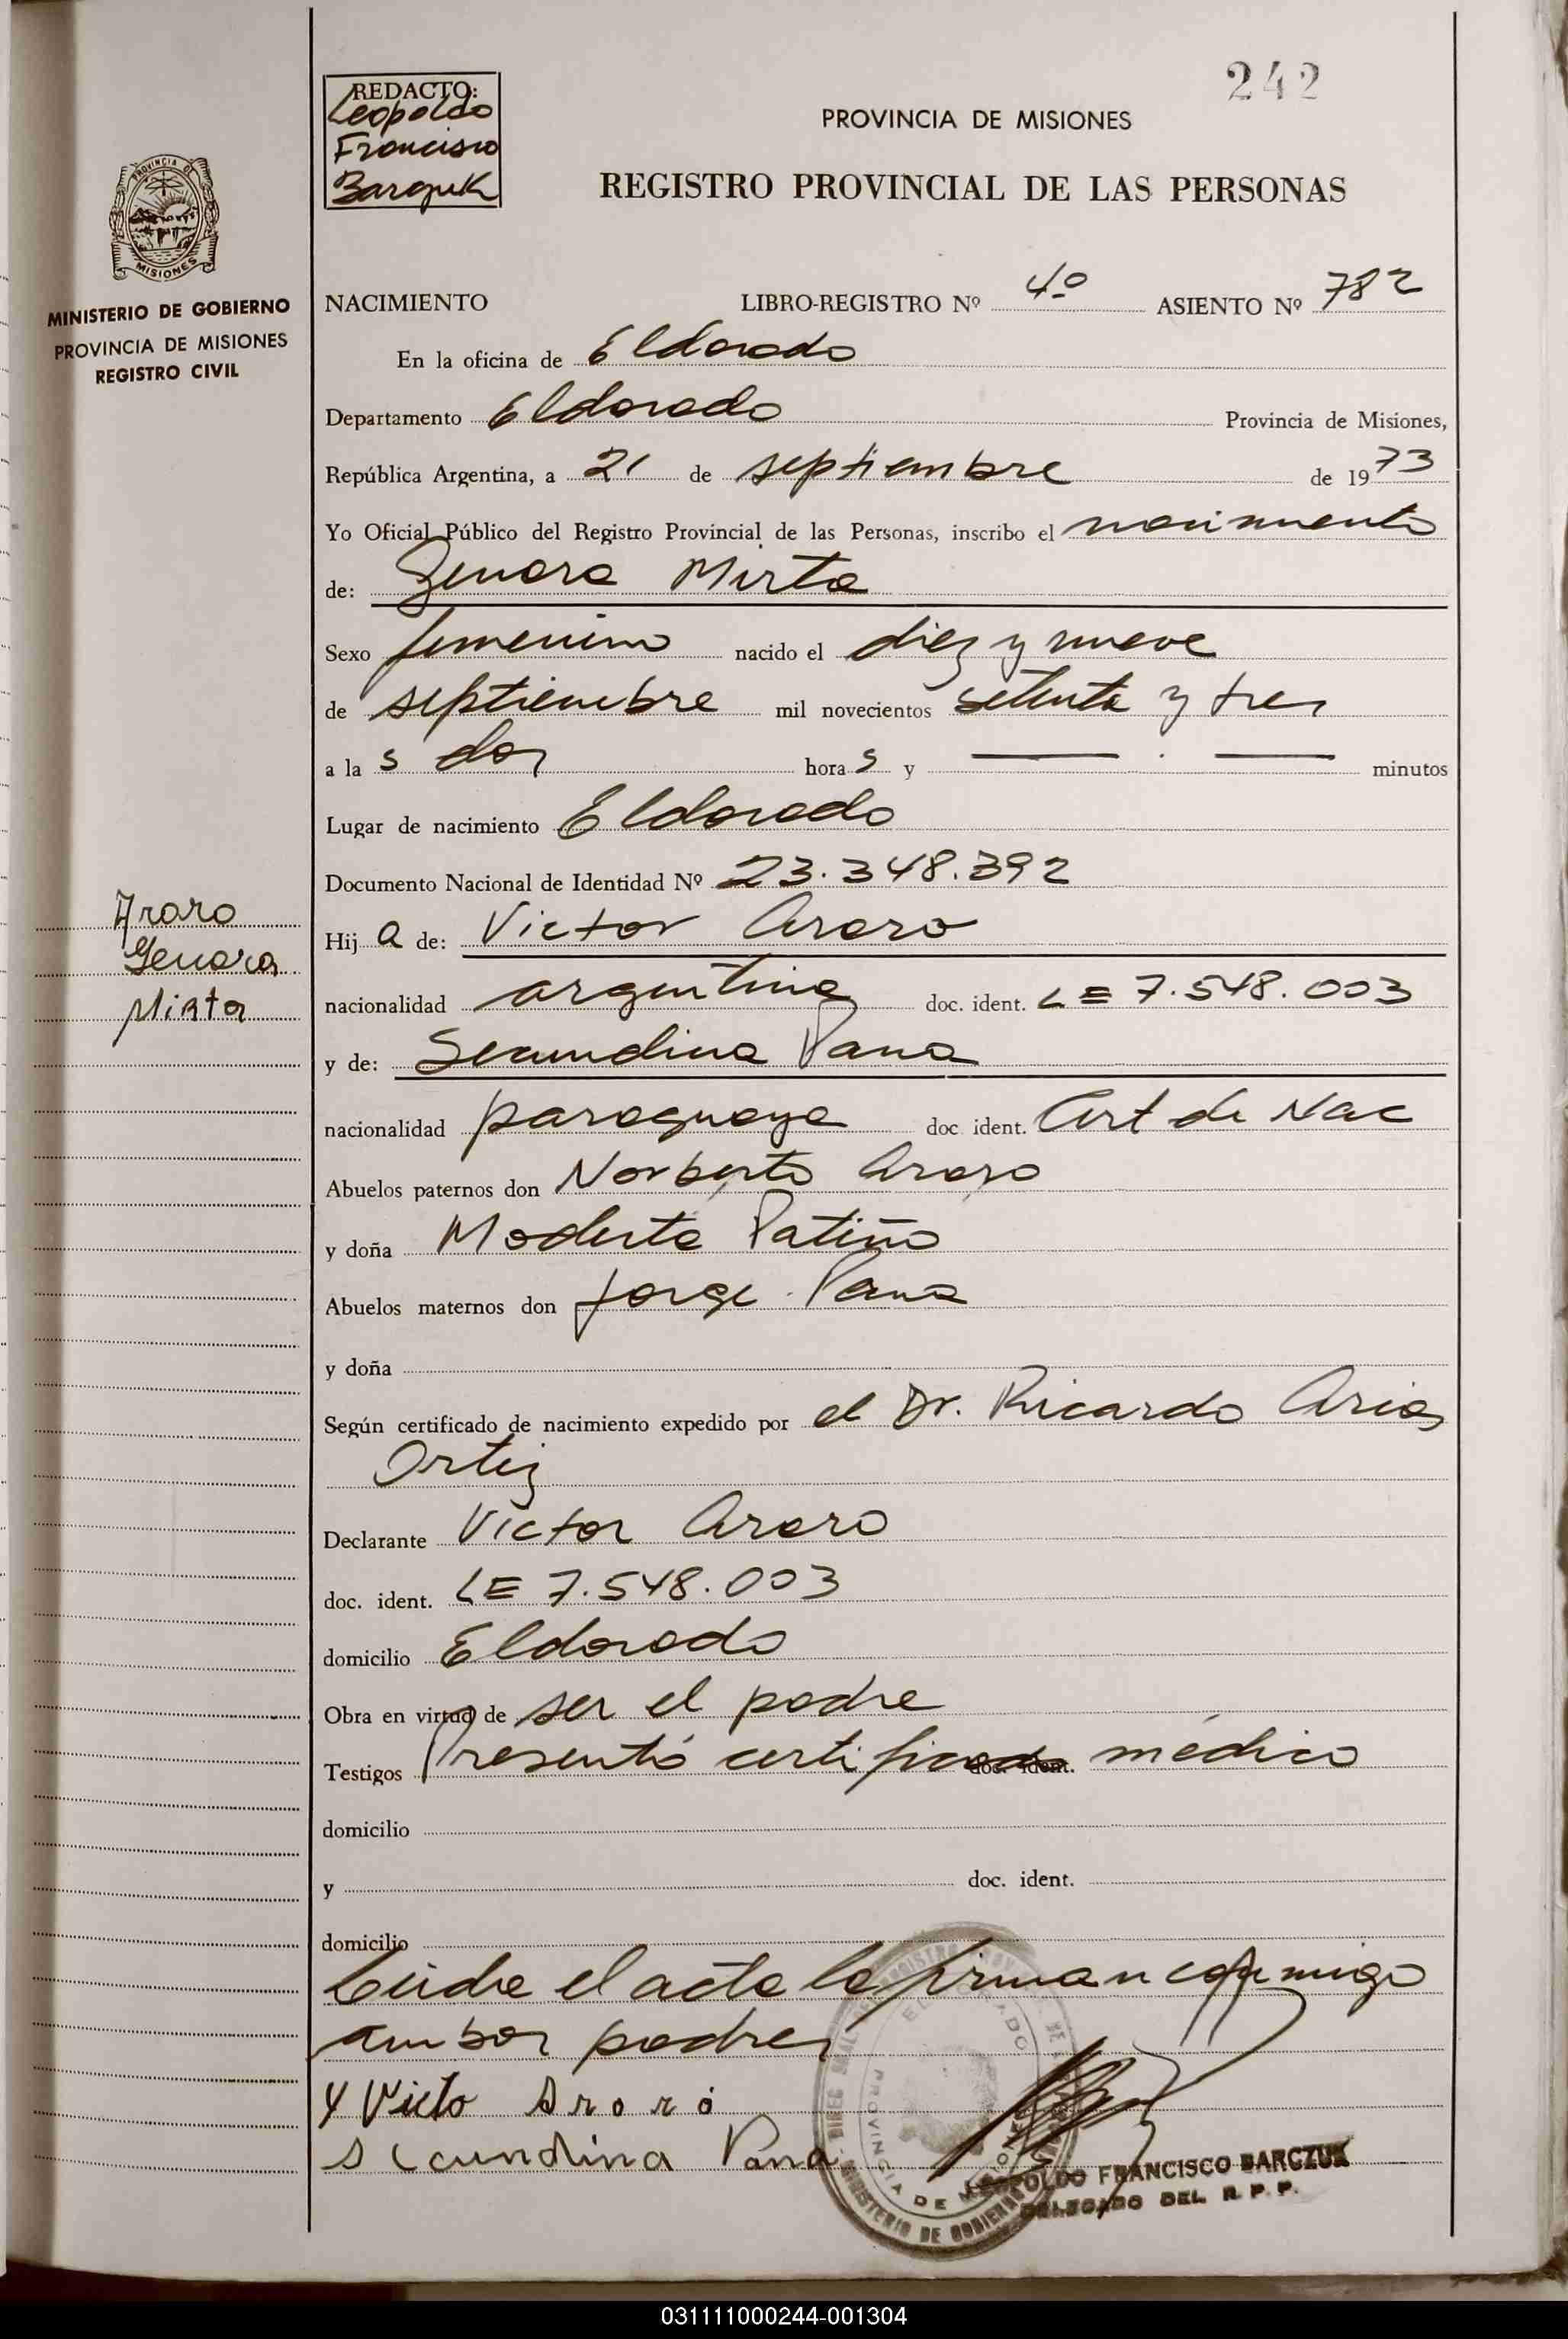 242
REDACTO:
Leopoldo
Francisco
Barczuk
PROVINCIA DE MISIONES
REGISTRO PROVINCIAL DE LAS PERSONAS
PROVINCIA DE
MISIONES
MINISTERIO DE GOBIERNO
PROVINCIA DE MISIONES
REGISTRO CIVIL
NACIMIENTO LIBRO-REGISTRO Nº 4º ASIENTO Nº 782
En la oficina de Eldorado
Departamento Eldorado Provincia de Misiones,
República Argentina, a 21 de septiembre de 1973
Yo Oficial Público del Registro Provincial de las Personas, inscribo el nacimiento
de: Genara Mirta
Sexo femenino nacido el diez y nueve
de septiembre mil novecientos setenta y tres
a las dos horas y — . — minutos
Lugar de nacimiento Eldorado
Documento Nacional de Identidad Nº 23.348.392
Araro
Genara
Mirta
Hija de: Victor Araro
nacionalidad argentina doc. ident. LE 7.548.003
y de: Secundina Pana
nacionalidad paraguaya doc. ident. Cert de Nac
Abuelos paternos don Norberto Araro
y doña Modesta Patiño
Abuelos maternos don Jorge Pana
y doña
Según certificado de nacimiento expedido por el Dr. Ricardo Arias
Ortiz
Declarante Victor Araro
doc. ident. LE 7.548.003
domicilio Eldorado
Obra en virtud de ser el padre
Testigos Presentó certificado doc. ident. médico
domicilio
y doc. ident.
domicilio
Leida el acta la firman conmigo
ambos padres
Victo Araro
Secundina Pana
LEOPOLDO FRANCISCO BARCZUK
DELEGADO DEL R. P. P.
031111000244-001304